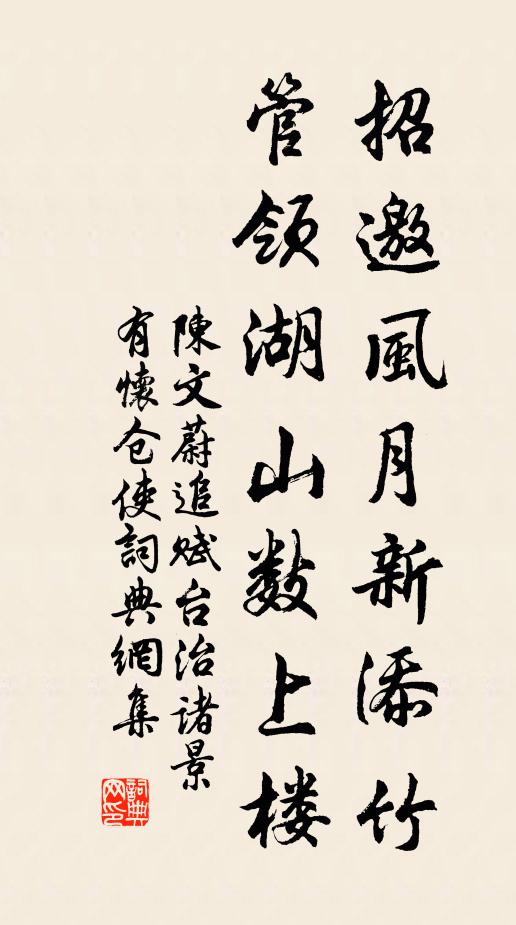 招邀風月新添竹
管領湖山数上楼
陳文蔚追賦台治諸景
有懷仓使詞典網集
詞典网印